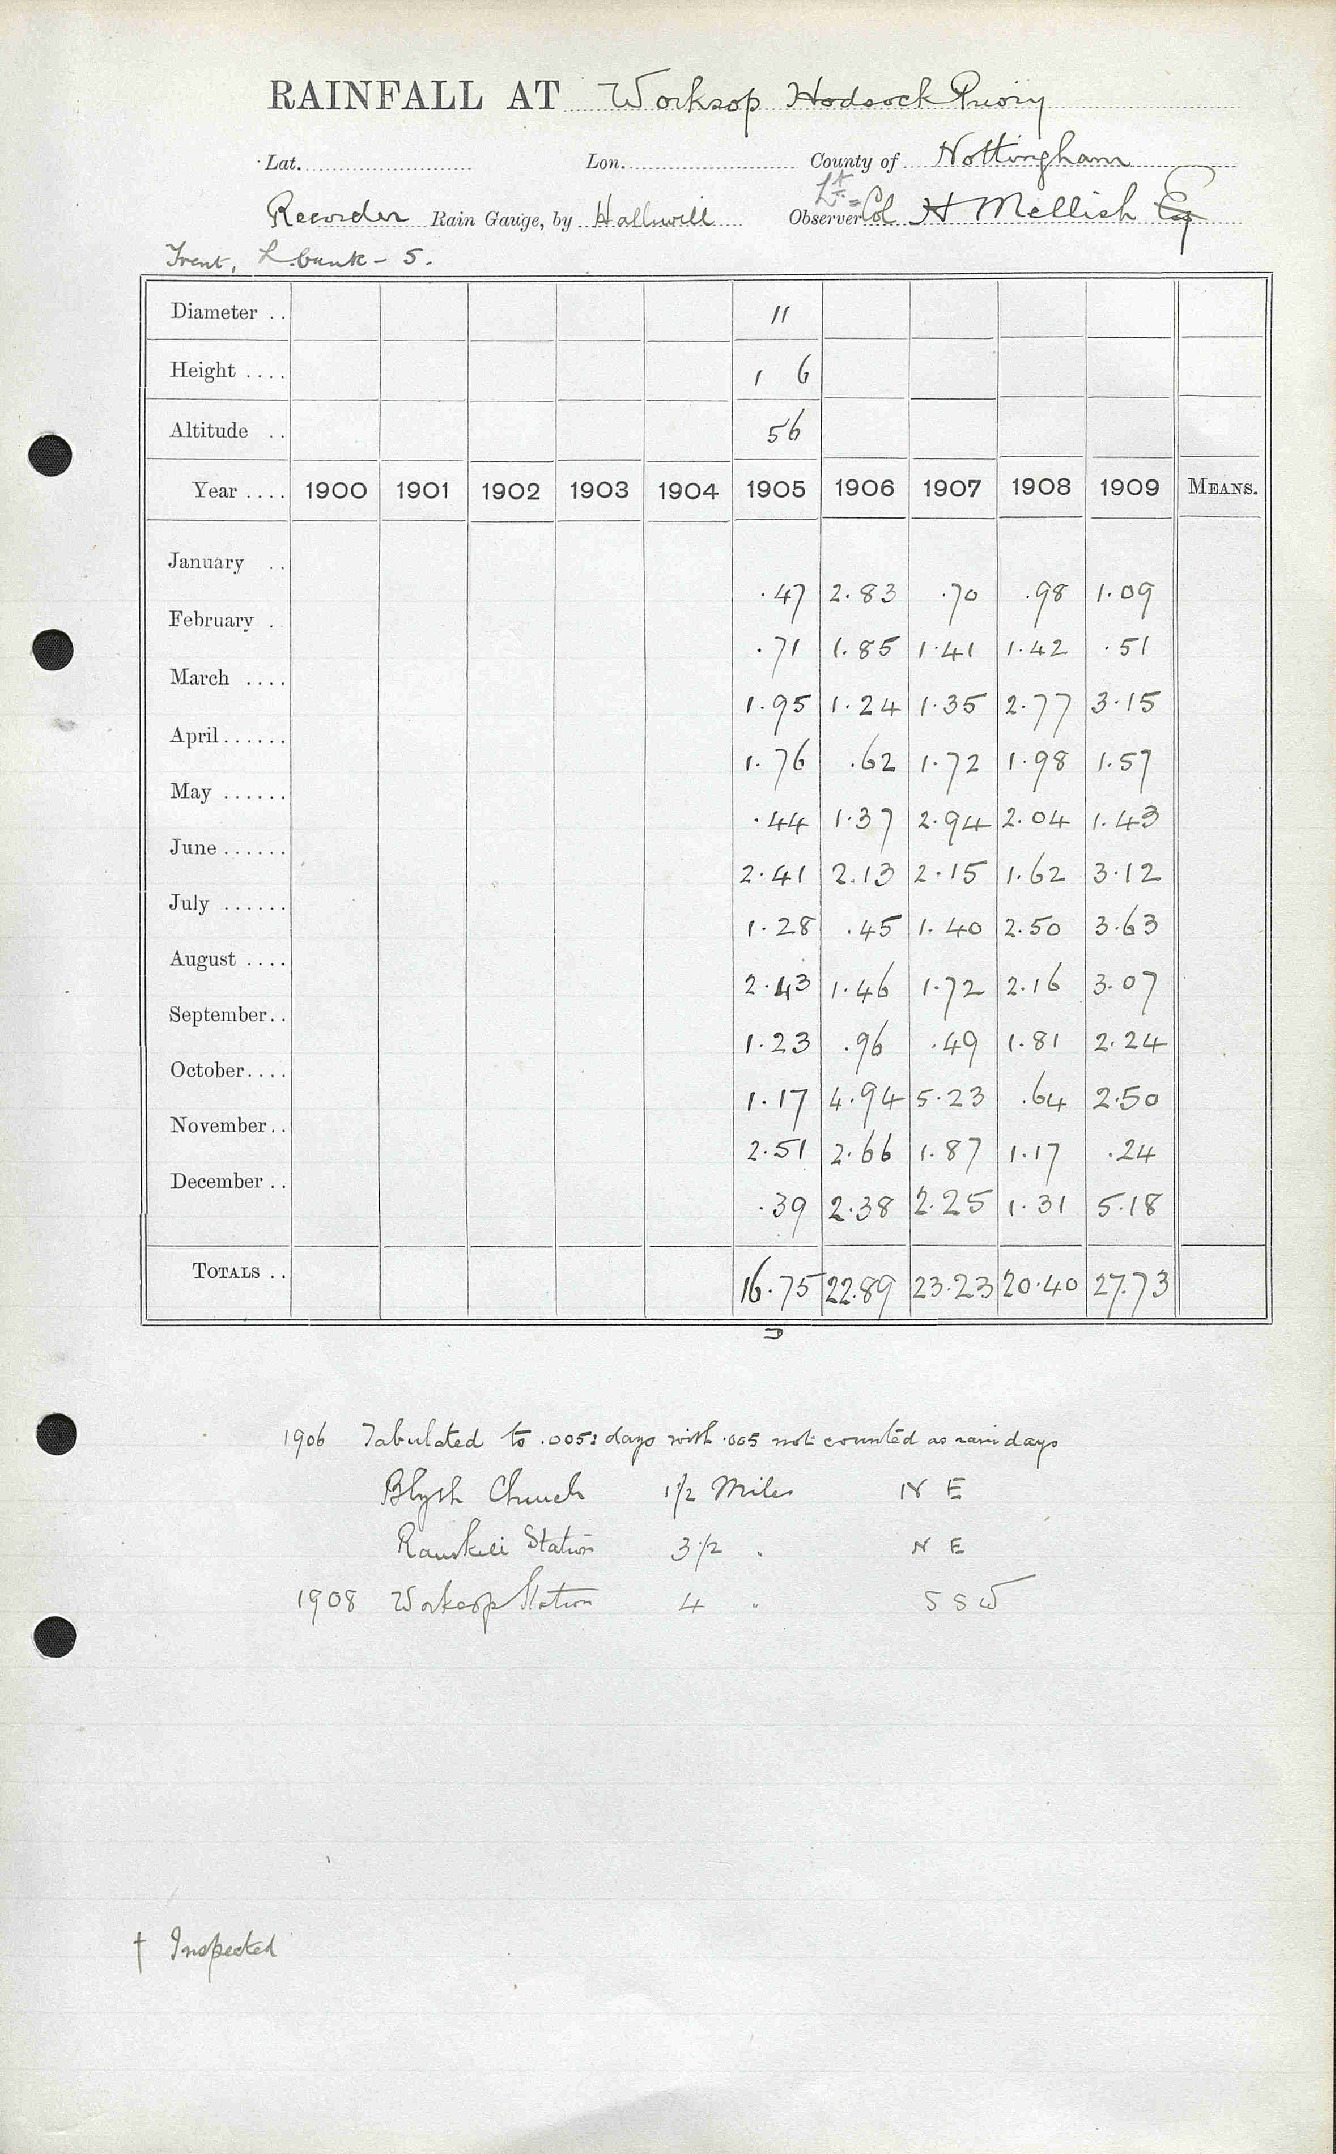 RAINFALL AT Worksop Hodsock Priory
Lat. Lon. County of Nottingham
Recorder Rain Gauge, by Halliwell Observer Lt = Col H Mellish Esq
Trent, L. bank - 5.
Diameter .. 11
Height .... 1 6
Altitude .. 56
Year .... 1900 1901 1902 1903 1904 1905 1906 1907 1908 1909 MEANS.
January .. .47 2.83 .70 .98 1.09
February . .71 1.85 1.41 1.42 .51
March .... 1.95 1.24 1.35 2.77 3.15
April...... 1.76 .62 1.72 1.98 1.57
May ...... .44 1.37 2.94 2.04 1.43
June ...... 2.41 2.13 2.15 1.62 3.12
July ...... 1.28 .45 1.40 2.50 3.63
August .... 2.43 1.46 1.72 2.16 3.07
September.. 1.23 .96 .49 1.81 2.24
October.... 1.17 4.94 5.23 .64 2.50
November.. 2.51 2.66 1.87 1.17 .24
December .. .39 2.38 2.25 1.31 5.18
TOTALS .. 16.75 22.89 23.23 20.40 27.73
1906 Tabulated to .005: days with .005 not counted as rain days
Blyth Church 1 1/2 Miles N E
Ranskill Station 3 1/2 " N E
1908 Worksop Station 4 " S S W
† Inspected